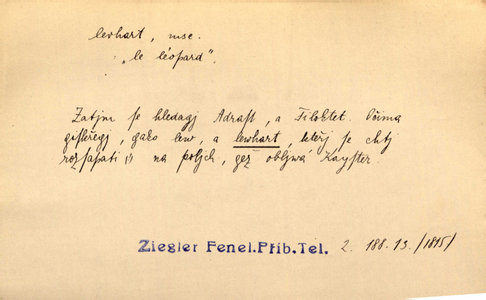 levhart, msc.
„le léopard".
Zatjm se hledagj Adrast, a Filoktet. Očima
giskřegj, gako lew, a lewhart, kteřj se chtj
rozsápati na poljch, gež obljwá Kayster
Ziegler Fenel.Příb.Tel. 2. 188.13. /1815/